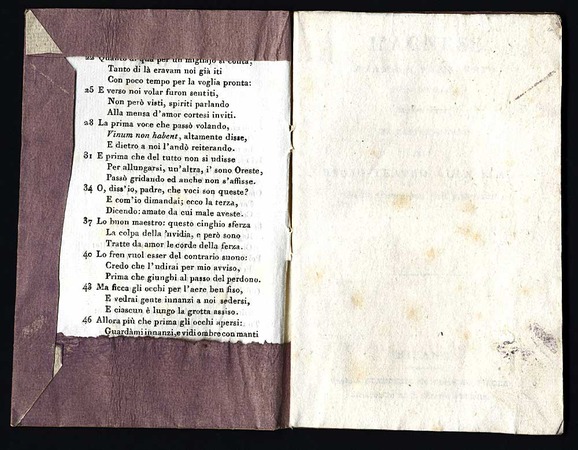 22 Quanto di quà per un migliajo si conta,
Tanto di là eravam noi già iti
Con poco tempo per la voglia pronta:
25 E verso noi volar furon sentiti,
Non però visti, spiriti parlando
Alla mensa d'amor cortesi inviti.
28 La prima voce che passò volando,
Vinum non habent, altamente disse,
E dietro a noi l'andò reiterando.
31 E prima che del tutto non si udisse
Per allungarsi, un'altra, i' sono Oreste,
Passò gridando ed anche non s'affisse.
34 O, diss'io, padre, che voci son queste?
E com'io dimandai; ecco la terza,
Dicendo: amate da cui male aveste.
37 Lo buon maestro: questo cinghio sferza
La colpa della 'nvidia, e però sono
Tratte da amor le corde della ferza.
40 Lo fren vuol esser del contrario suono:
Credo che l'udirai per mio avviso,
Prima che giunghi al passo del perdono.
43 Ma ficca gli occhi per l'aere ben fiso,
E vedrai gente innanzi a noi sedersi,
E ciascun è lungo la grotta assiso.
46 Allora più che prima gli occhi apersi:
Guardàmi innanzi, e vidi ombre con manti